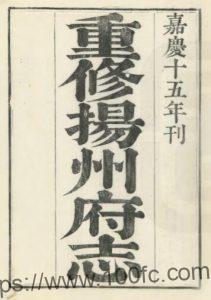 嘉慶十五年刊
重修揚州府志
ps://www.100fc.com